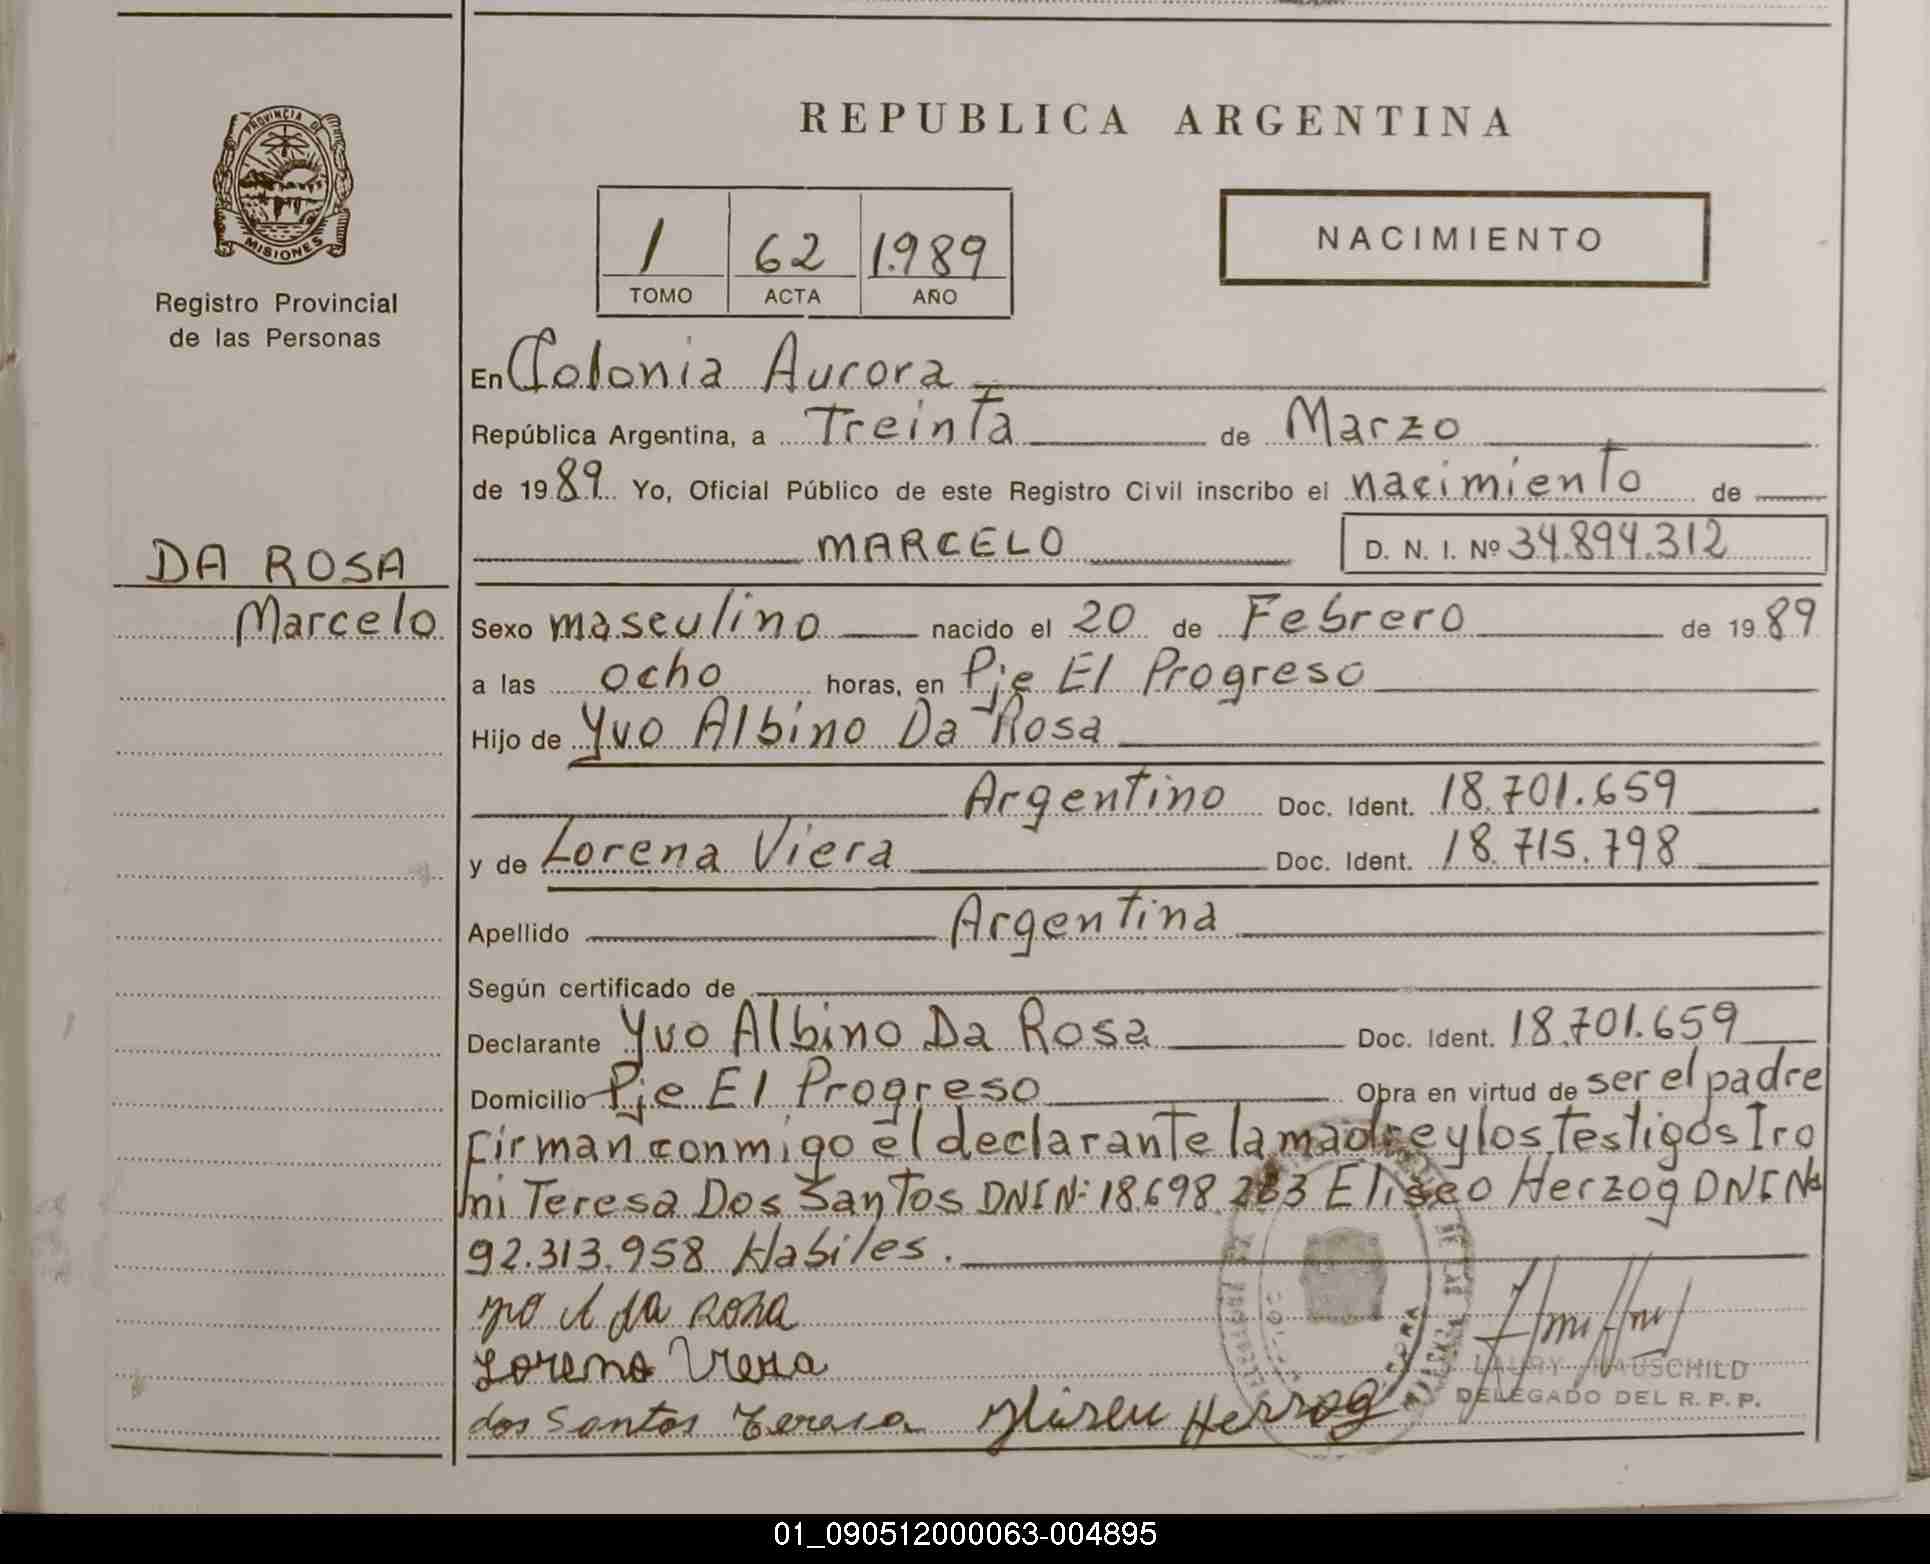 PROVINCIA DE
MISIONES
Registro Provincial
de las Personas
DA ROSA
Marcelo
REPUBLICA ARGENTINA
1 62 1.989
TOMO ACTA AÑO
NACIMIENTO
En Colonia Aurora
República Argentina, a Treinta de Marzo
de 1989 Yo, Oficial Público de este Registro Civil inscribo el nacimiento de
MARCELO D. N. I. Nº 34.894.312
Sexo masculino nacido el 20 de Febrero de 1989
a las ocho horas, en Pje El Progreso
Hijo de Yvo Albino Da Rosa
Argentino Doc. Ident. 18.701.659
y de Lorena Viera Doc. Ident. 18.715.798
Apellido Argentina
Según certificado de
Declarante Yvo Albino Da Rosa Doc. Ident. 18.701.659
Domicilio Pje El Progreso Obra en virtud de ser el padre
Firman conmigo el declarante la madre y los testigos Iro
ni Teresa Dos Santos DNI Nº 18.698.283 Eliseo Herzog DNI Nº
92.313.958 Habiles.
yvo A da rosa
Lorena Viera
HAUSCHILD
DELEGADO DEL R. P. P.
dos Santos Teresa Herzog
01_090512000063-004895